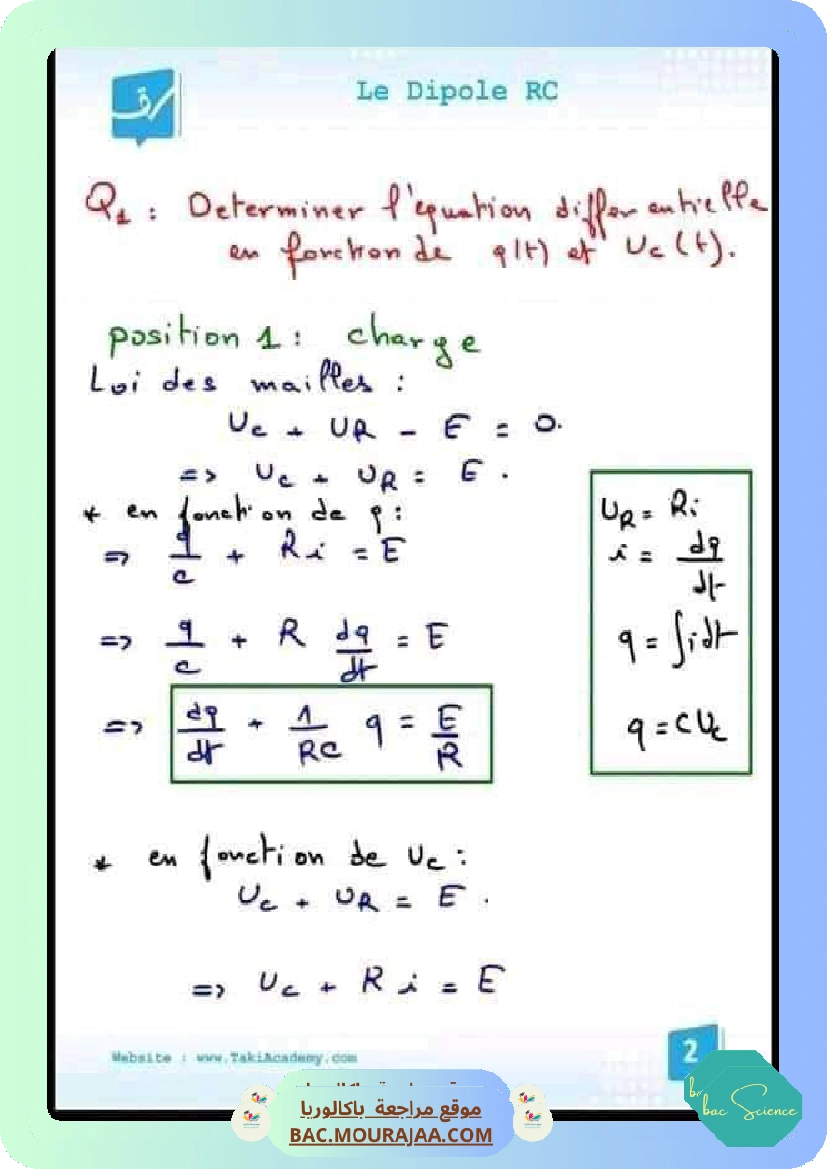 Le Dipole RC
Q1 : Determiner l'équation differentielle
en fonction de q(t) et Uc(t).
position 1 : charge
Loi des mailles :
Uc + UR - E = 0.
=> Uc + UR = E .
* en fonction de q :
=> q/c + Ri = E
=> q/c + R dq/dt = E
=> dq/dt + 1/RC q = E/R
UR = Ri
i = dq/dt
q = ∫idt
q = CUc
* en fonction de Uc :
Uc + UR = E .
=> Uc + Ri = E
Website : www.TakiAcademy.com
2
موقع مراجعة باكالوريا
BAC.MOURAJAA.COM
bac Science